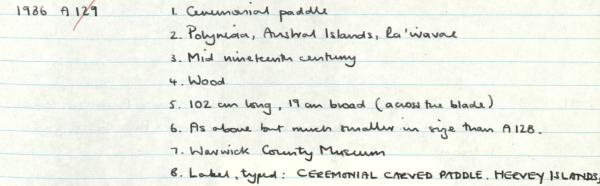 1986 A 129 1. Ceremonial paddle
2. Polynesia, Austral Islands, Ra'ivavae
3. Mid nineteenth century
4. Wood
5. 102 cm long, 19 cm broad (across the blade)
6. As above but much smaller in size than A128.
7. Warwick County Museum
8. Label, typed: CEREMONIAL CARVED PADDLE. HERVEY ISLANDS,